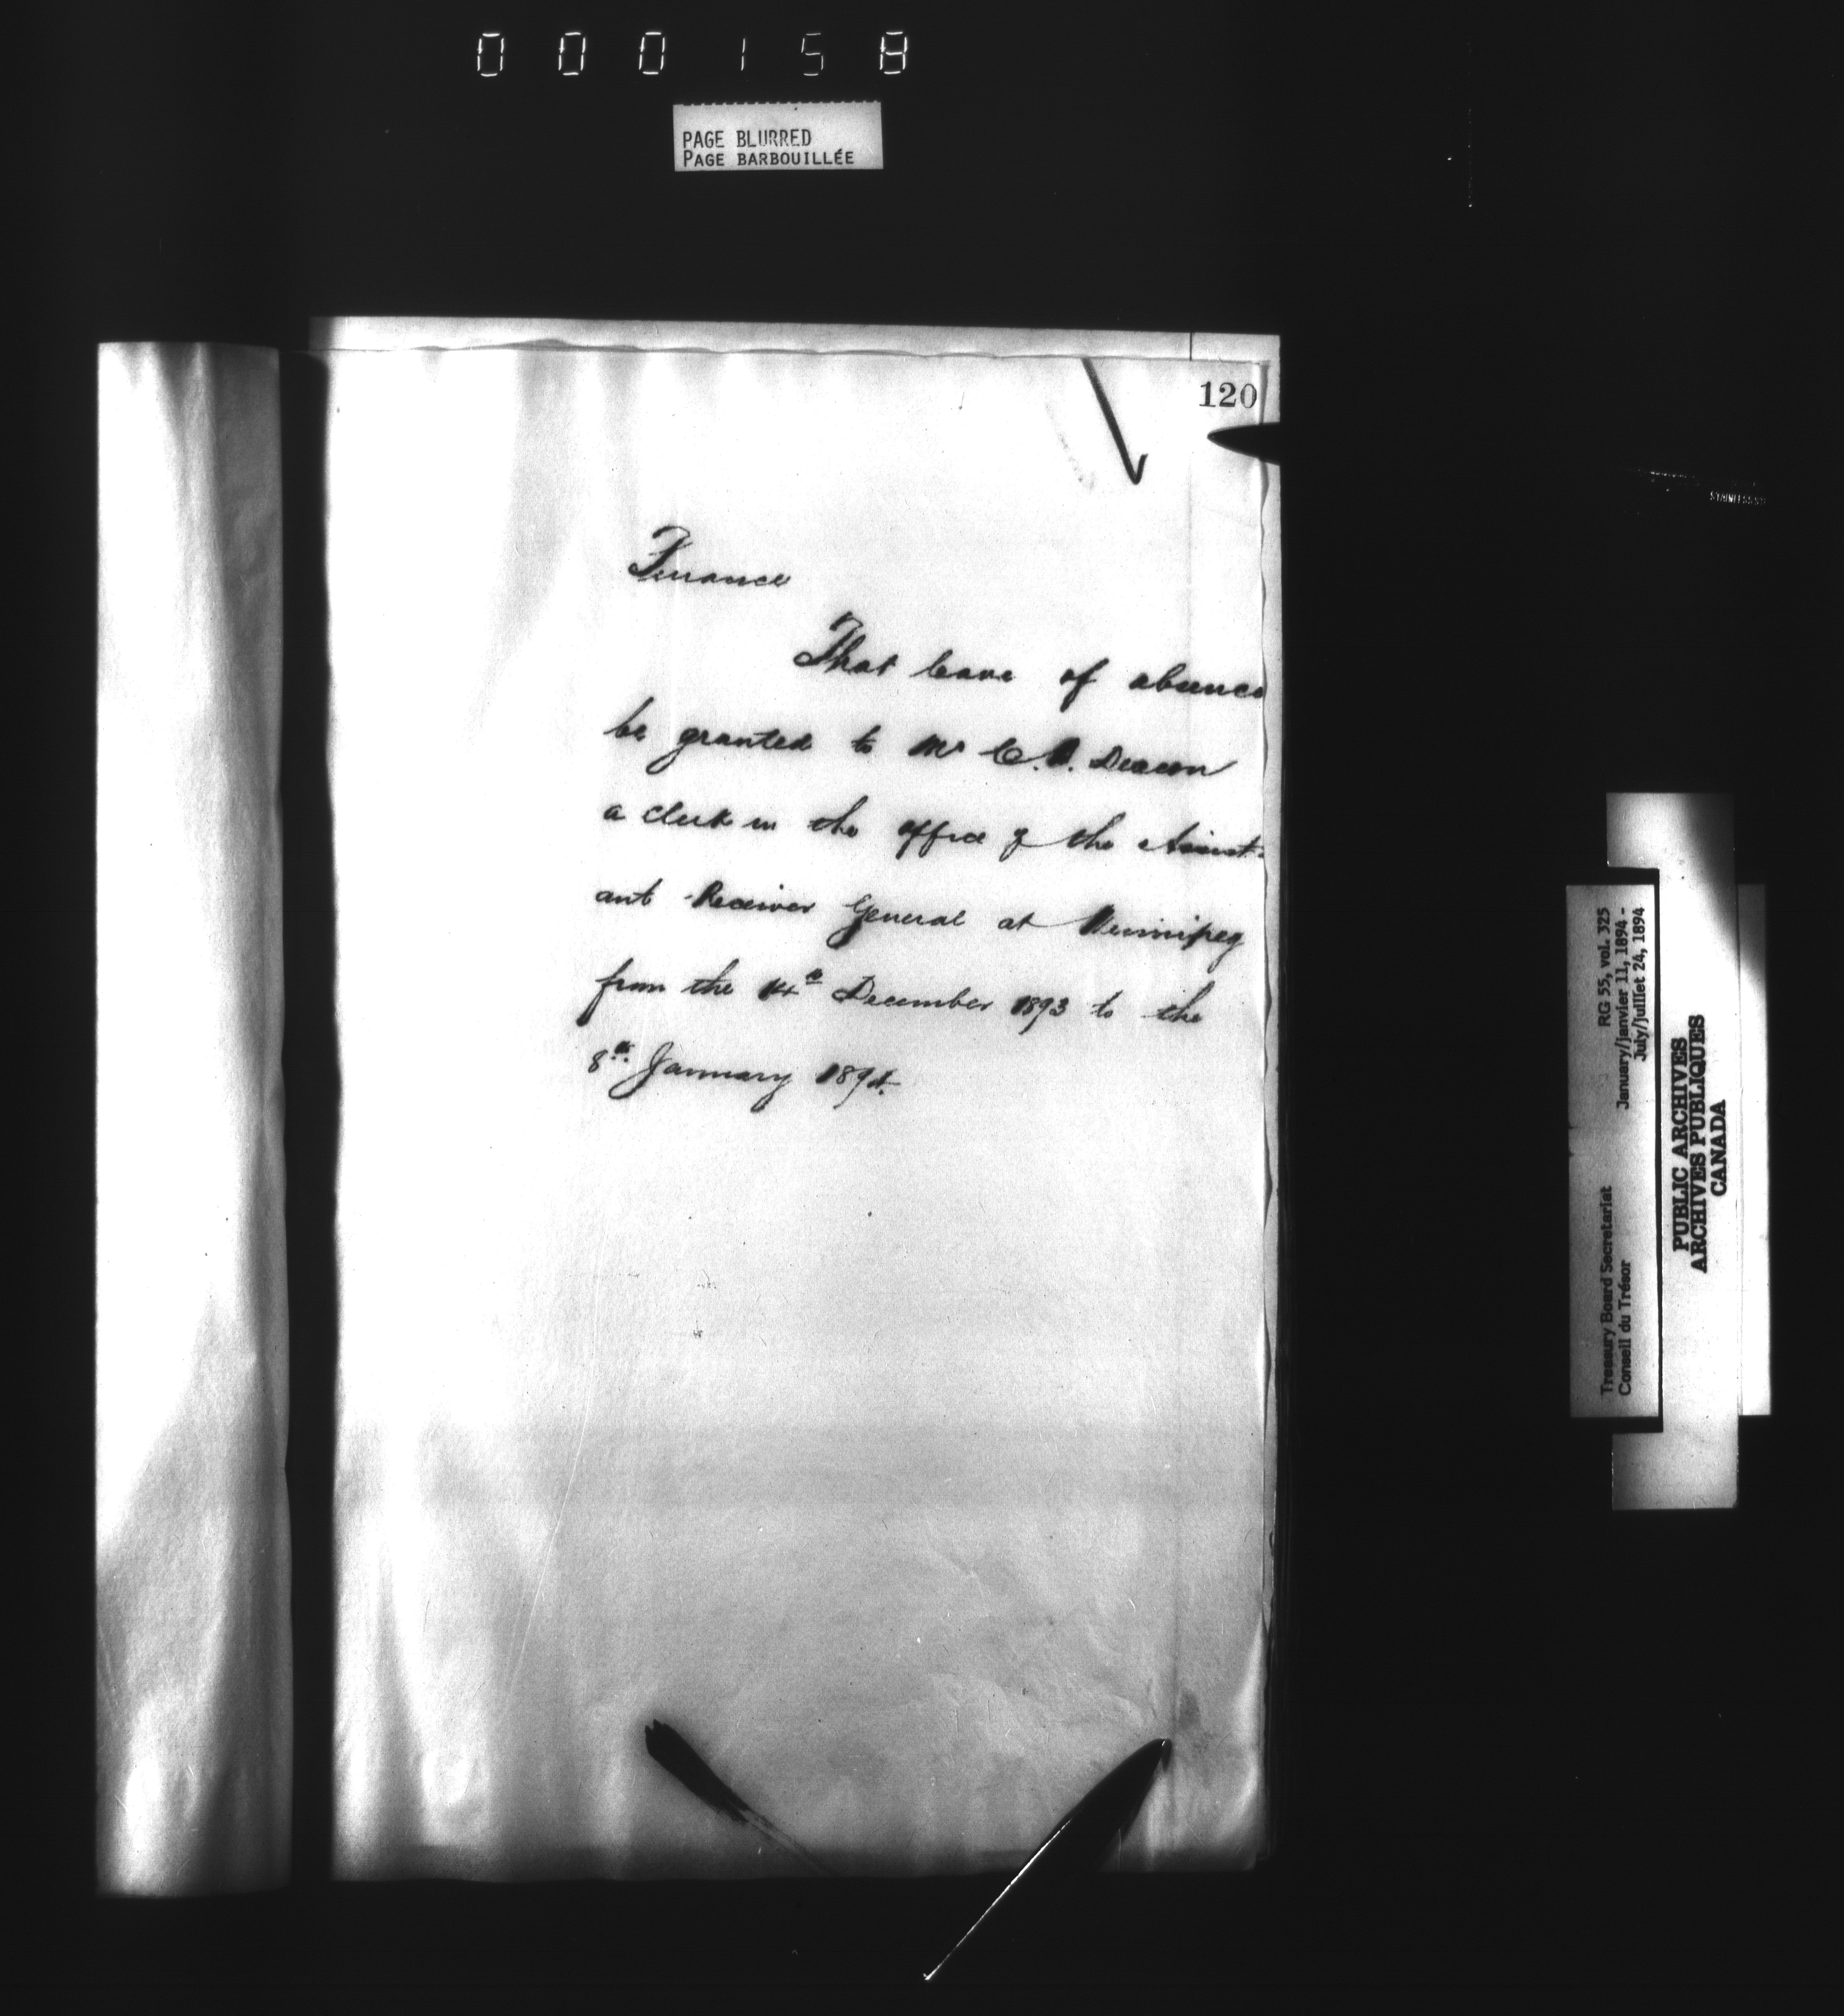 000158
PAGE BLURRED
PAGE BARBOUILLÉE
120
Finance
That leave of absence
be granted to Mr C. Deacon
a clerk in the office of the Assist-
ant Receiver General at Winnipeg
from the 14th December 1893 to the
8th January 1894.
RG 55, vol. 325
January/janvier 11, 1894 -
July/juillet 24, 1894
Treasury Board Secretariat
Conseil du Trésor
PUBLIC ARCHIVES
ARCHIVES PUBLIQUES
CANADA